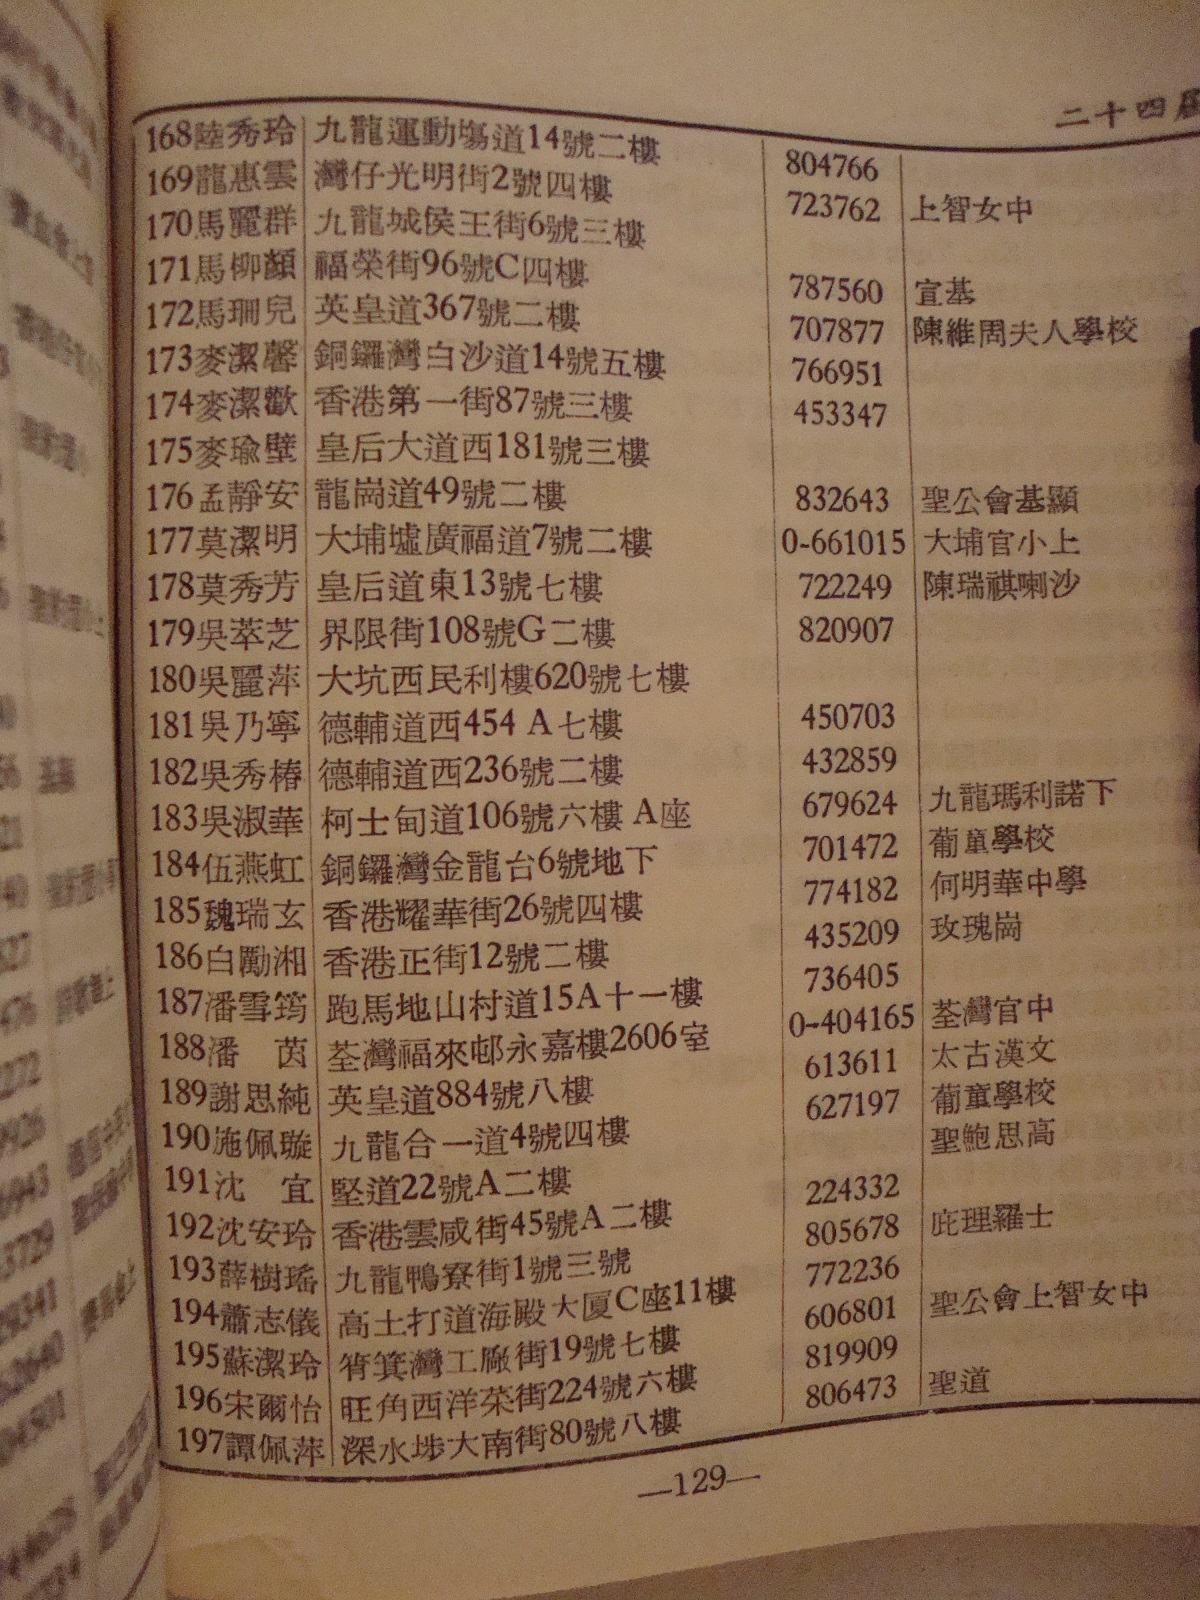 二十四屆
168 陸秀玲 九龍運動場道14號二樓 804766
169 龍惠雲 灣仔光明街2號四樓 723762 上智女中
170 馬麗群 九龍城侯王街6號三樓
171 馬柳顏 福榮街96號C四樓 787560 宣基
172 馬珊兒 英皇道367號二樓 707877 陳維周夫人學校
173 麥潔馨 銅鑼灣白沙道14號五樓 766951
174 麥潔歡 香港第一街87號三樓 453347
175 麥瑜璧 皇后大道西181號三樓
176 孟靜安 龍崗道49號二樓 832643 聖公會基顯
177 莫潔明 大埔墟廣福道7號二樓 0-661015 大埔官小上
178 莫秀芳 皇后道東13號七樓 722249 陳瑞祺喇沙
179 吳萃芝 界限街108號G二樓 820907
180 吳麗萍 大坑西民利樓620號七樓
181 吳乃寧 德輔道西454 A七樓 450703
182 吳秀椿 德輔道西236號二樓 432859
183 吳淑華 柯士甸道106號六樓 A座 679624 九龍瑪利諾下
184 伍燕虹 銅鑼灣金龍台6號地下 701472 葡童學校
185 魏瑞玄 香港耀華街26號四樓 774182 何明華中學
186 白勵湘 香港正街12號二樓 435209 玫瑰崗
187 潘雪筠 跑馬地山村道15A十一樓 736405
188 潘 茵 荃灣福來邨永嘉樓2606室 0-404165 荃灣官中
189 謝思純 英皇道884號八樓 613611 太古漢文
190 施佩璇 九龍合一道4號四樓 627197 葡童學校
191 沈 宜 堅道22號A二樓 聖鮑思高
192 沈安玲 香港雲咸街45號A二樓 224332
193 薛樹瑤 九龍鴨寮街1號三號 805678 庇理羅士
194 蕭志儀 高士打道海殿大厦C座11樓 772236
195 蘇潔玲 筲箕灣工廠街19號七樓 606801 聖公會上智女中
196 宋爾怡 旺角西洋菜街224號六樓 819909
197 譚佩萍 深水埗大南街80號八樓 806473 聖道
—129—